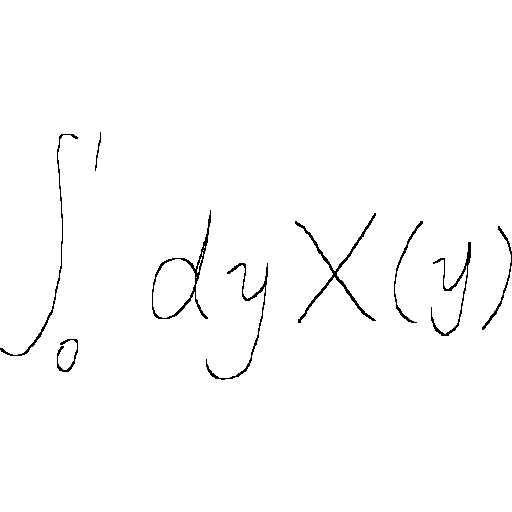 \int_0^1 dy X(y)